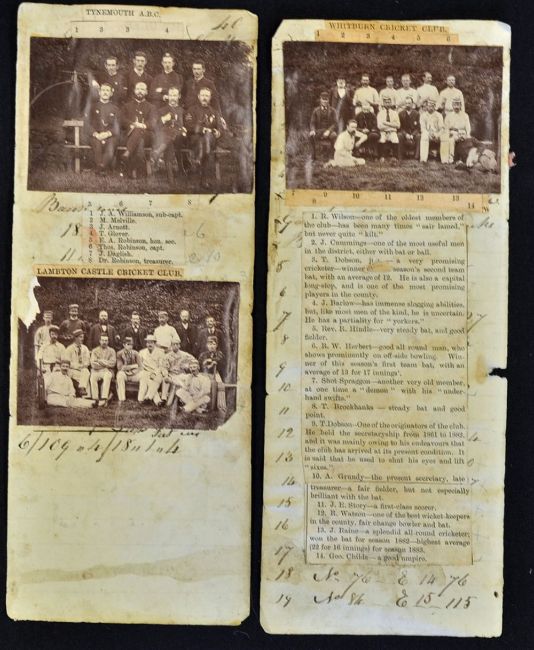 TYNEMOUTH A.B.C.
1 2 3 4
5 6 7 8
1 J. A. Williamson, sub-capt.
2 M. Melville.
3 J. Arnott.
4 T. Glover.
5 E. A. Robinson, hon. sec.
6 Thos. Robinson, capt.
7 J. Daglish.
8 Dr. Robinson, treasurer.
18
11
LAMBTON CASTLE CRICKET CLUB.
WHITBURN CRICKET CLUB.
1 2 3 4 5 6
7 8 9 10 11 12 13 14
1. R. Wilson—one of the oldest members of
the club—has been many times "sair lamed,"
but never quite "kilt."
2. J. Cummings—one of the most useful men
in the district, either with bat or ball.
3. T. Dobson, a very promising
cricketer—winner season's second team
bat, with an average of 12. He is also a capital
long-stop, and is one of the most promising
players in the county.
4. J. Barlow—has immense slogging abilities,
but, like most men of the kind, he is uncertain.
He has a partiality for "yorkers."
5. Rev. R. Hindle—very steady bat, and good
fielder.
6. R. W. Herbert—good all round man, who
shows prominently on off-side bowling. Win-
ner of this season's first team bat, with an
average of 13 for 17 innings.
7. Shot Spraggon—another very old member,
at one time a "demon" with his "under-
hand swifts."
8. T. Brockbanks—steady bat and good
point.
9. T. Dobson—One of the originators of the club.
He held the secretaryship from 1861 to 1882,
and it was mainly owing to his endeavours that
the club has arrived at its present condition. It
is said that he used to shut his eyes and lift
"sixes."
10. A. Grundy—the present secretary, late
treasurer—a fair fielder, but not especially
brilliant with the bat.
11. J. E. Story—a first-class scorer.
12. R. Watson—one of the best wicket-keepers
in the county, fair change bowler and bat.
13. J. Raine—a splendid all round cricketer;
won the bat for season 1882—highest average
(22 for 16 innings) for season 1883.
14. Geo. Childs—a good umpire.
6
7
8
9
10
11
12
13
14
15
16
17
18 No 76 — E 14 76
19 No 84 — E 15 — 115